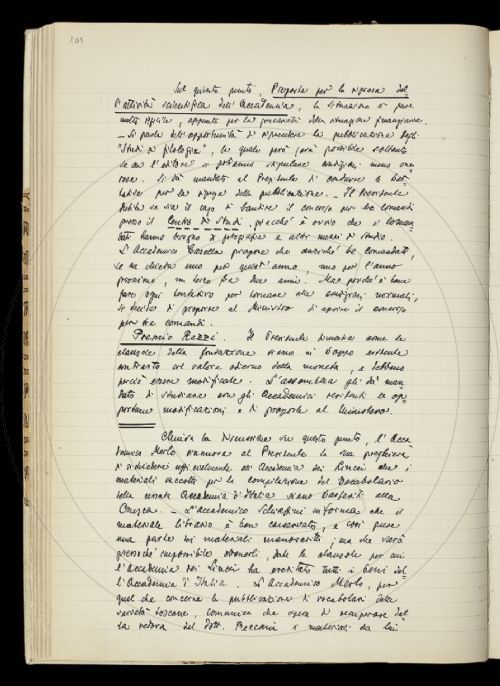 101
Sul quinto punto, Proposte per la ripresa del-
l'attività scientifica dell'Accademia, la situazione ci pare
molto difficile, appunto per la precarietà della situazione finanziaria.
– Si parla dell'opportunità di riprendere la pubblicazione degli
"Studi di filologia", la quale però sarà possibile soltanto
se con l'editore si potranno stipulare condizioni meno one-
rose. Si dà mandato al Presidente di condurre le trat-
tative per la ripresa della pubblicazione. – Il Presidente
dubita se sia il caso di bandire il concorso per tre comandi
presso il Centro di Studi, giacché è ovvio che i coman-
dati hanno bisogno di fotografie e altri mezzi di studio.
L'Accademico Casella propone che anziché tre comandati,
se ne chieda uno per quest'anno, uno per l'anno
prossimo, un terzo fra due anni. Ma poiché è bene
fare ogni tentativo per tornare alle condizioni normali,
si decide di proporre al Ministero di aprire il concorso
per tre comandi.
Premio Rezzi. Il Presidente dimostra come le
clausole della fondazione siano in troppo evidente
contrasto col valore odierno della moneta, e debbano
perciò essere modificate. L'assemblea gli dà man-
dato di studiare con gli Accademici residenti le op-
portune modificazioni e di proporle al Ministero.
Chiusa la discussione su questo punto, l'Acca-
demico Merlo rinnova al Presidente la sua preghiera
di richiedere ufficialmente all'Accademia dei Lincei che i
materiali raccolti per la compilazione del Vocabolario
della cessata Accademia d'Italia siano trasferiti alla
Crusca. – L'accademico Schiaffini informa che il
materiale librario è ben conservato, e così pure
una parte dei materiali manoscritti; ma che sarà
pressoché impossibile ottenerli, date le clausole per cui
l'Accademia dei Lincei ha ereditato tutti i beni del-
l'Accademia d'Italia. L'Accademico Merlo, per
quel che concerne la pubblicazione di vocabolari della
varietà toscane, comunica che spera di recuperare dal-
la vedova del Dott. Beccani i materiali da lui